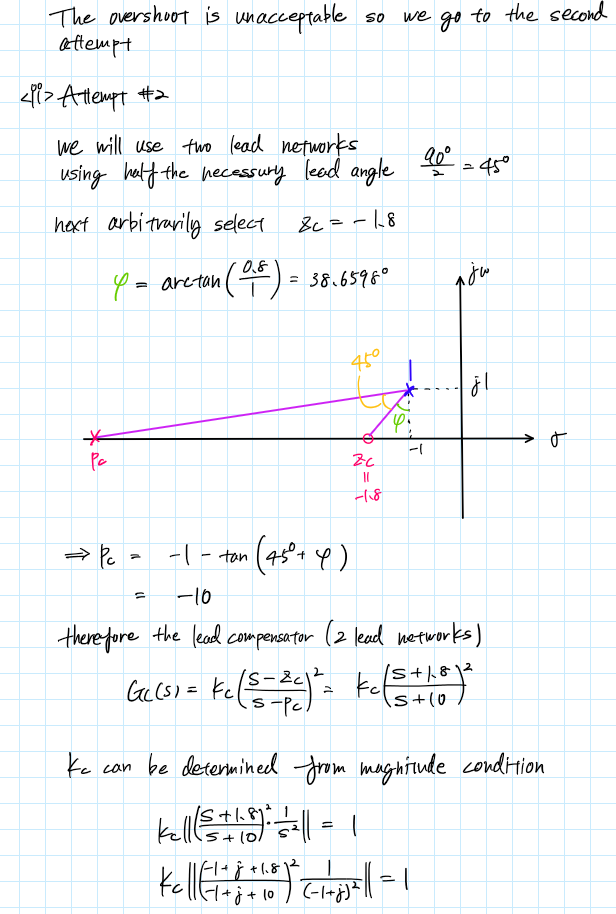 The overshoot is unacceptable so we go to the second
attempt
<ii> Attempt #2
we will use two lead networks
using half the necessary lead angle 90°/2 = 45°
next arbitrarily select Zc = -1.8
φ = arctan(0.8/1) = 38.6598°
jω
45°
j1
φ
-1
σ
Pc
Zc
=
-1.8
⇒ Pc = -1 - tan(45° + φ)
= -10
therefore the lead compensator (2 lead networks)
Gc(s) = Kc((s-Zc)/(s-Pc))² = Kc((s+1.8)/(s+10))²
Kc can be determined from magnitude condition
Kc‖((s+1.8)/(s+10))² · 1/s²‖ = 1
Kc‖((-1+j+1.8)/(-1+j+10))² 1/(-1+j)²‖ = 1